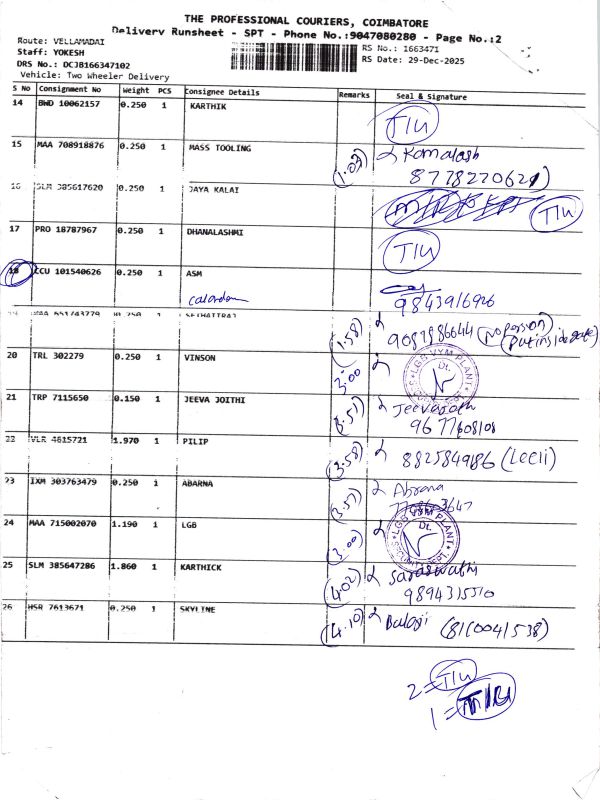 THE PROFESSIONAL COURIERS, COIMBATORE
Delivery Runsheet - SPT - Phone No.:9047080280 - Page No.:2
Route: VELLAMADAI
Staff: YOKESH
DRS No.: DCJB166347102
Vehicle: Two Wheeler Delivery
RS No.: 1663471
RS Date: 29-Dec-2025
S No Consignment No Weight PCS Consignee Details Remarks Seal & Signature
14 BWD 10062157 0.250 1 KARTHIK T/U
15 MAA 708918876 0.250 1 MASS TOOLING (1.03) Kamalash
8778270621)
16 SLM 385617620 0.250 1 JAYA KALAI T/U
17 PRO 18787967 0.250 1 DHANALASHMI T/U
18 CCU 101540626 0.250 1 ASM
9843916926
19 MAA 651743779 0.250 1 SETHATTRAJ (1.58) 9087986644 (No person)
(Put inside gate)
20 TRL 302279 0.250 1 VINSON 3.00
LGB VYM PLANT
21 TRP 7115650 0.150 1 JEEVA JOITHI (3.51) Jeevajothi
9677608108
22 VLR 4615721 1.970 1 PILIP (3.58) 8825849186 (Leeli)
23 IXM 303763479 0.250 1 ABARNA (3.57) Abrana
24 MAA 715002070 1.190 1 LGB (3.00)
LGB VYM PLANT
25 SLM 385647286 1.860 1 KARTHICK (4.02) Saraswathi
9894315510
26 HSR 7613671 0.250 1 SKYLINE (4.10) Balaji (8110041538)
2 = T/U
1 =